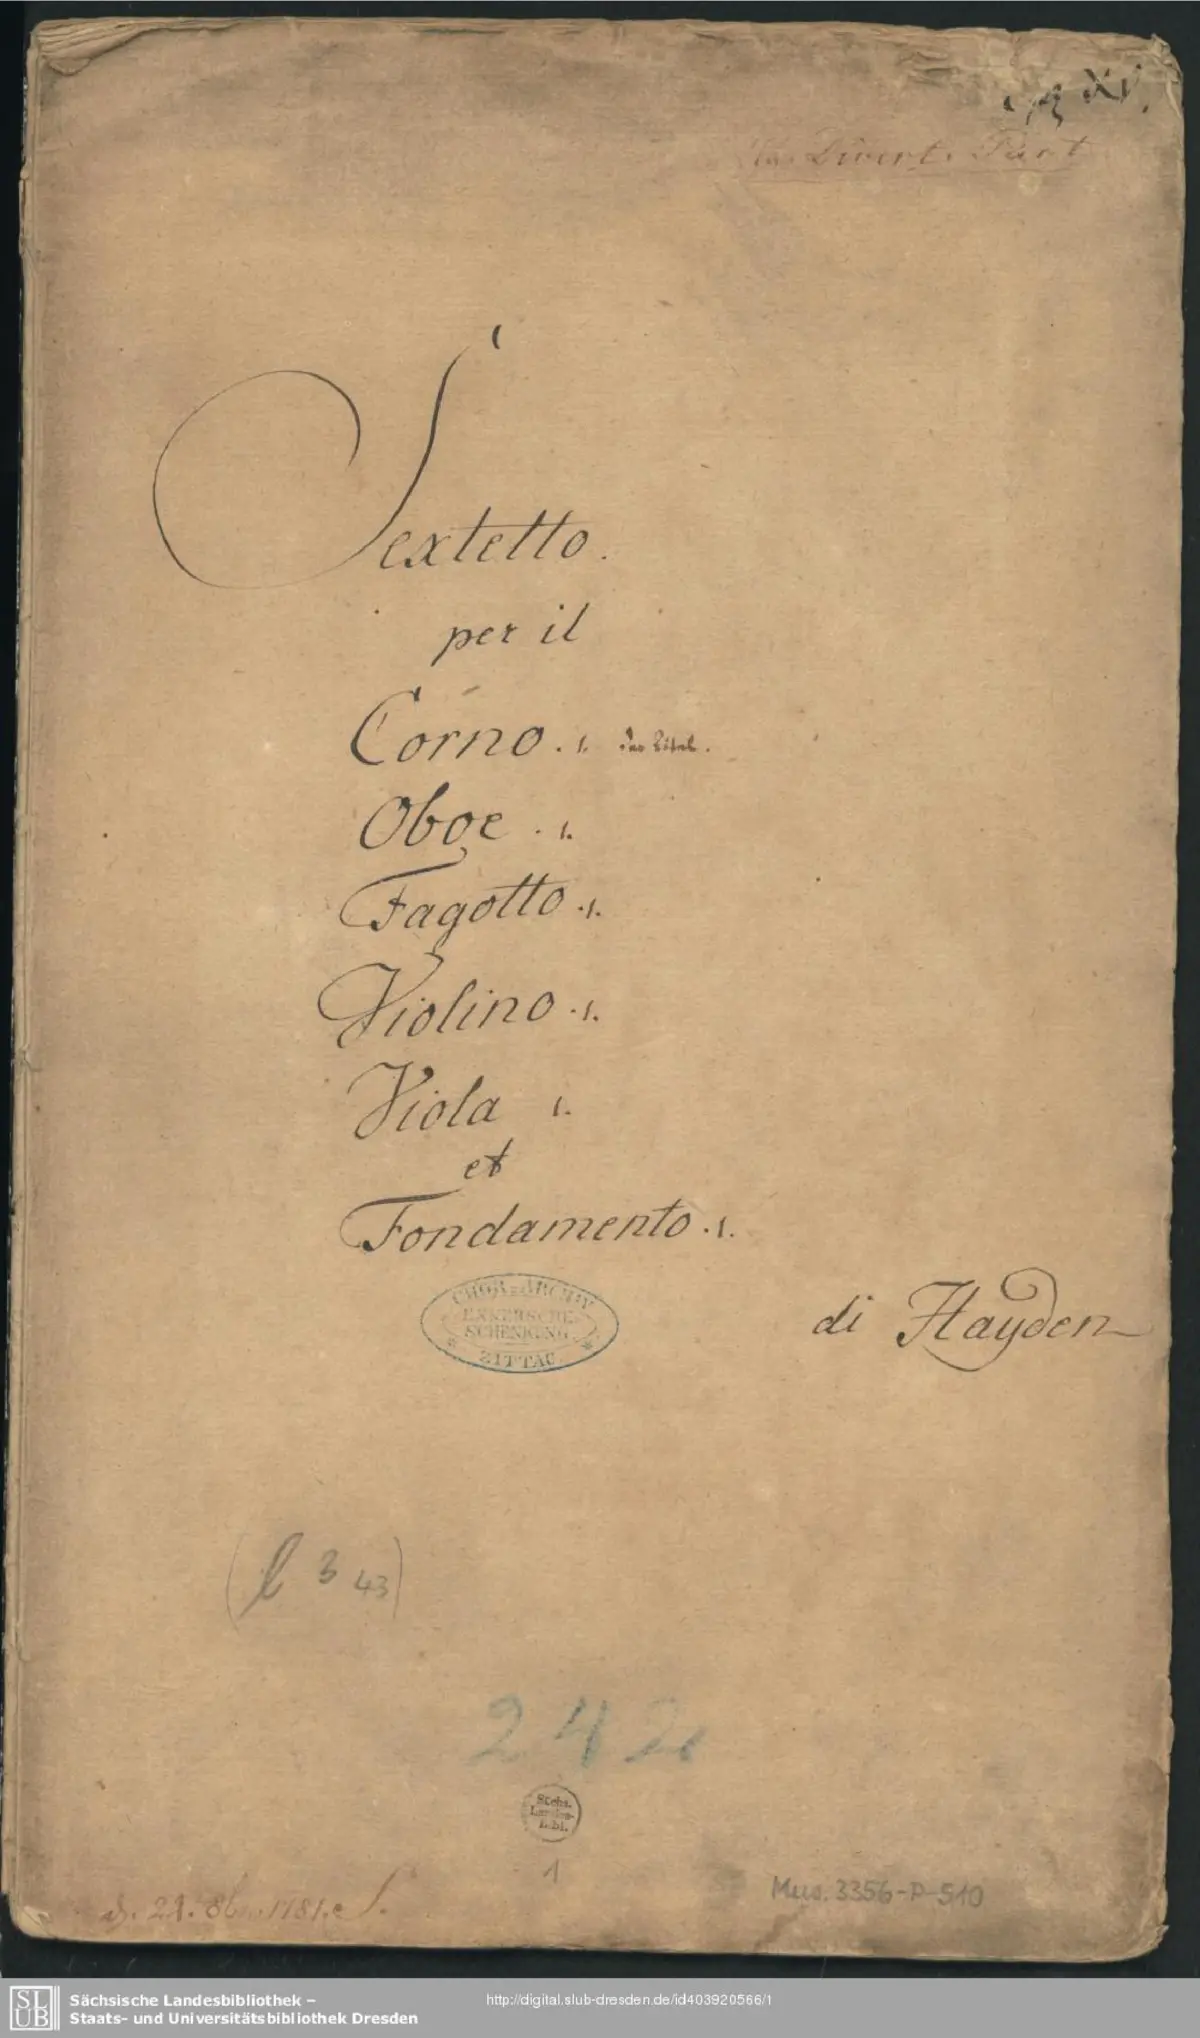 Divert. Part
Sextetto.
per il
Corno. 1.
Oboe. 1.
Fagotto. 1.
Violino. 1.
Viola 1.
et
Fondamento. 1.
CHOR=ARCHIV
EXNERSCHE
SCHENKUNG
ZITTAU
di Hayden
(l 3 43)
242
Sächs.
Landes-
Bibl.
1
d. 21. 8br. 1781.
Mus. 3356-P-510
SLUB
Sächsische Landesbibliothek –
Staats- und Universitätsbibliothek Dresden
http://digital.slub-dresden.de/id403920566/1